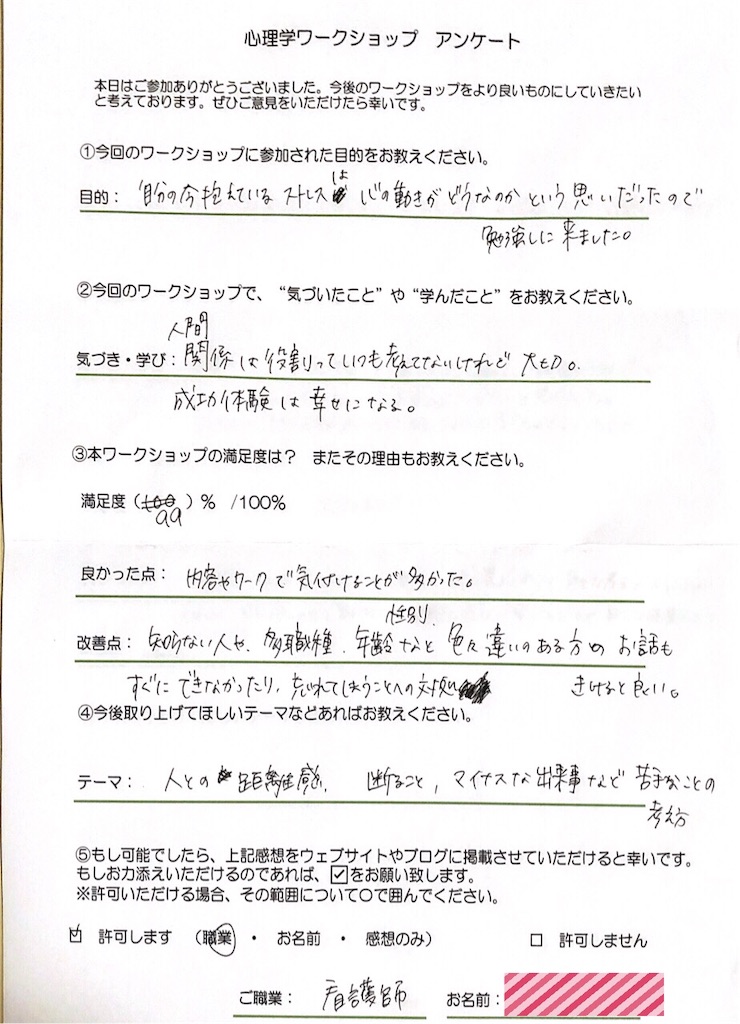 心理学ワークショップ　アンケート
本日はご参加ありがとうございました。今後のワークショップをより良いものにしていきたい
と考えております。ぜひご意見をいただけたら幸いです。
①今回のワークショップに参加された目的をお教えください。
目的： 自分の今抱えているストレスは心の動きがどうなのかという思いだったので
勉強しに来ました。
②今回のワークショップで、“気づいたこと”や“学んだこと”をお教えください。
人間
気づき・学び：関係は役割っていつも考えてないけれど
成功体験は幸せになる。
③本ワークショップの満足度は？　またその理由もお教えください。
満足度（100）％　/100％
99
良かった点： 内容やワークで気付けることが多かった。
性別
改善点： 知らない人や、多職種、年齢など色々違いのある方のお話も
すぐにできなかったり、忘れてしまうことへの対処　きけると良い。
④今後取り上げてほしいテーマなどあればお教えください。
テーマ： 人との距離感、断ること、マイナスな出来事など苦手なことの
考え方
⑤もし可能でしたら、上記感想をウェブサイトやブログに掲載させていただけると幸いです。
もしお力添えいただけるのであれば、☑をお願い致します。
※許可いただける場合、その範囲について〇で囲んでください。
☑　許可します　（職業　・　お名前　・　感想のみ）　□　許可しません
ご職業： 看護師　お名前：